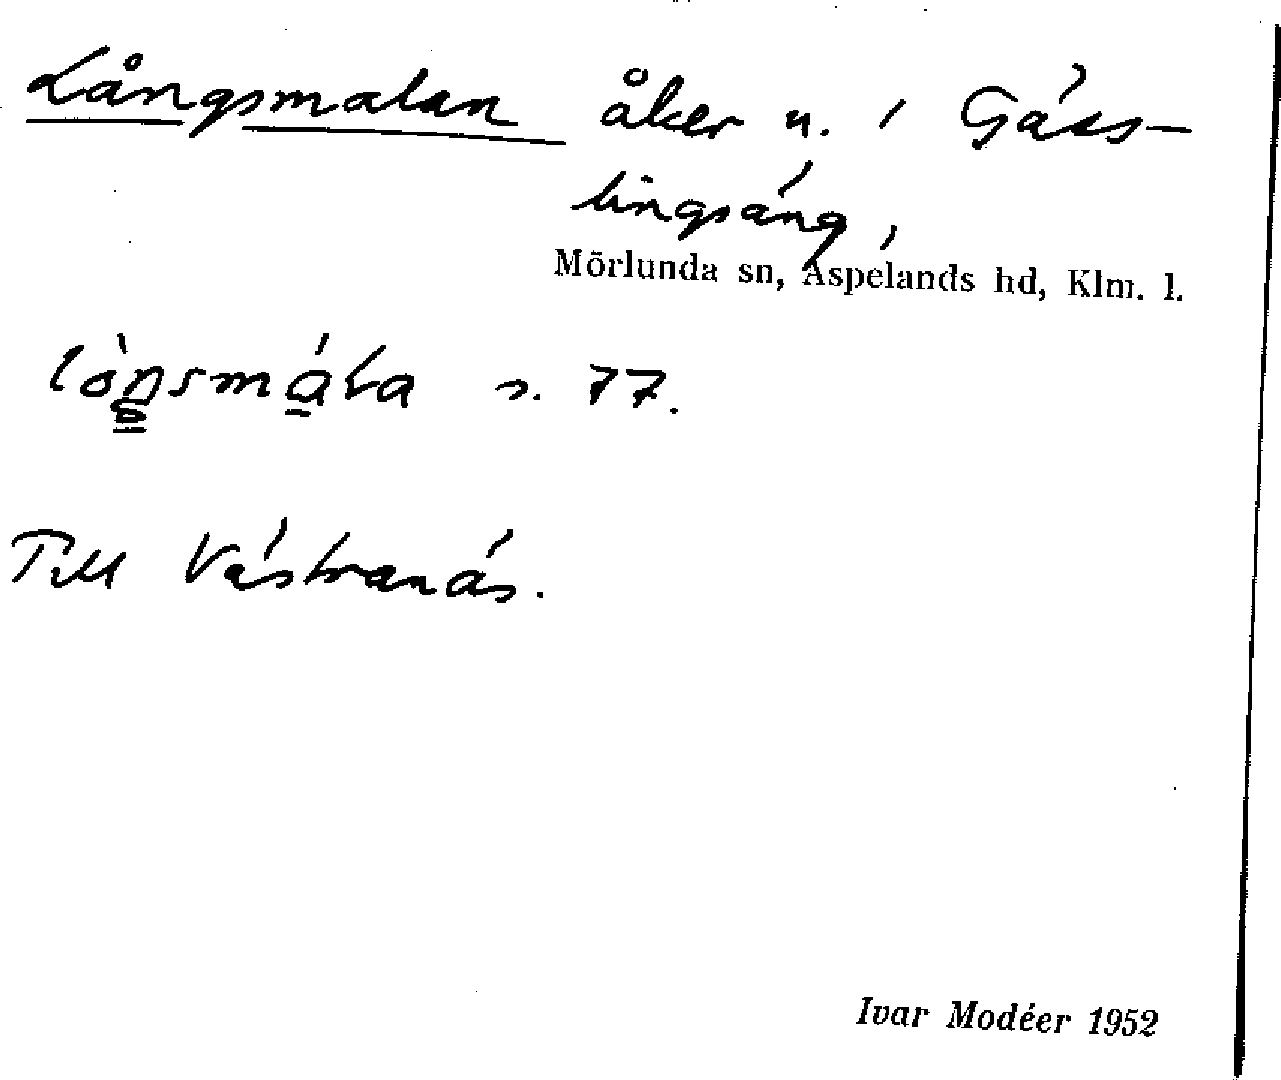 Långsmalan åker n. i Gäss-
lingsäng,
Mörlunda sn, Aspelands hd, Klm. l.
s. 77.
Till Västranäs.
Ivar Modéer 1952